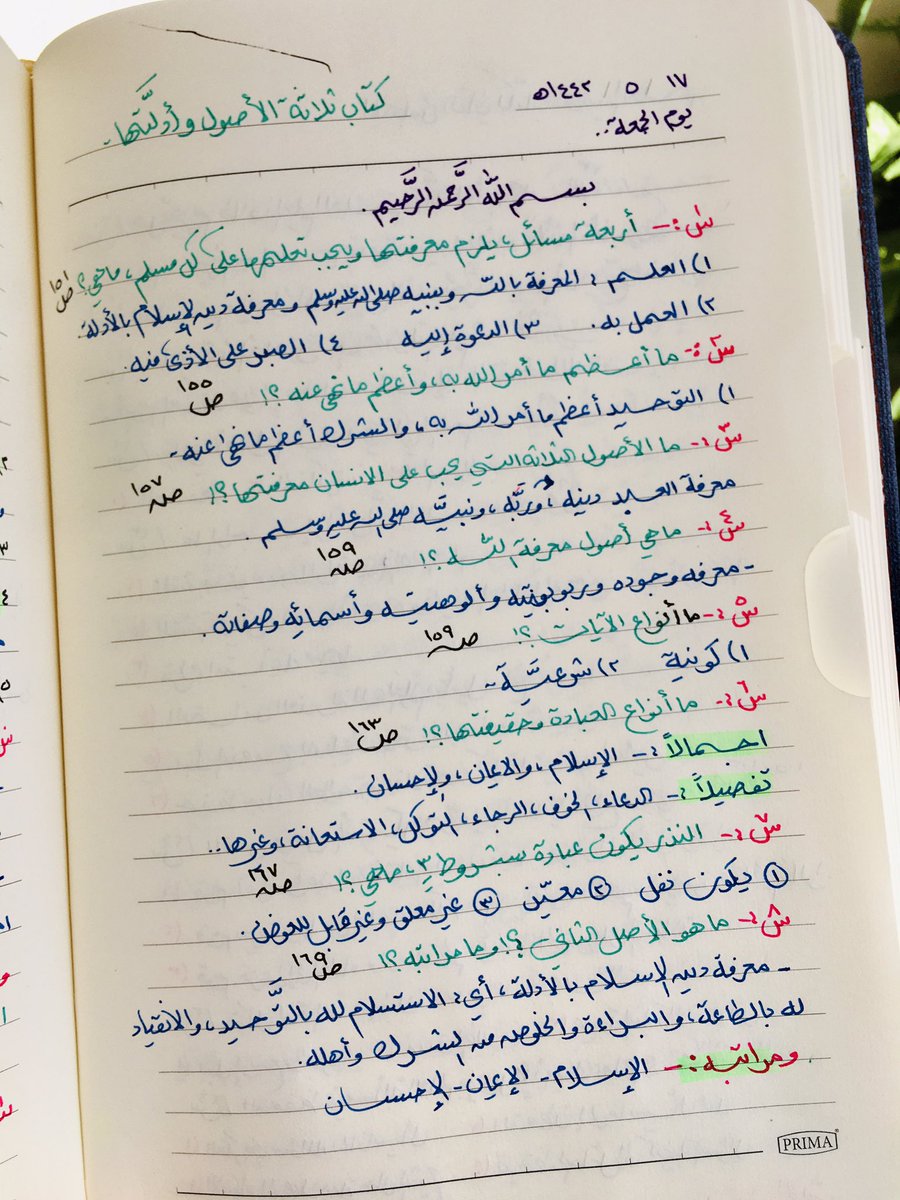 ١٧ / ٥ / ١٤٤٢هـ
يوم الجمعة..
كتاب ثلاثة الأصول وأدلَّتها.
بسم الله الرَّحمن الرَّحيم.
س١:- أربعة مسائل، يلزم معرفتها ويجب تعلمها على كل مسلم، ماهي؟ ص١٥١
١) العلم: المعرفة بالله وبنبيه صلى الله عليه وسلم ومعرفة دين الإسلام بالأدلة.
٢) العمل به. ٣) الدعوة إليه ٤) الصبر على الأذى فيه.
س٢:- ما أعظم ما أمر الله به، وأعظم ما نهى عنه؟! ص١٥٥
١) التوحيد أعظم ما أمر الله به، والشرك أعظم ما نهى عنه.
س٣:- ما الأصول الثلاثة التي يجب على الانسان معرفتها؟! صـ١٥٧
معرفة العبد دينه، وربَّه، ونبيَّه صلى الله عليه وسلم.
س٤:- ماهي أصول معرفة الله؟! صـ١٥٩
- معرفه وجوده وربوبيته وألوهيته وأسمائه وصفاته.
س٥:- ما أنواع الآيات؟! صـ١٥٩
١) كونية ٢) شرعيَّة.
س٦:- ما أنواع العبادة وحقيقتها؟! ص١٦٣
اجمالاً:- الإسلام، والايمان، والإحسان.
تفصيلاً:- الدعاء، الخوف، الرجاء، التوكل، الاستعانة، وغيرها..
س٧:- النذر يكون عبادة بشروط ٣، ماهي؟! صـ١٦٧
① يكون نفل ② معيّن ③ غير معلق وغير قابل للعوض.
س٨:- ما هو الأصل الثاني؟! وما مراتبه؟! ص١٦٩
- معرفة دين الإسلام بالأدلة، أي: الاستسلام لله بالتَّوحيد، والانقياد
له بالطاعة، والبراءة والخلوص من الشرك وأهله.
ومراتبه:- الإسلام - الإيمان - الإحسان
PRIMA